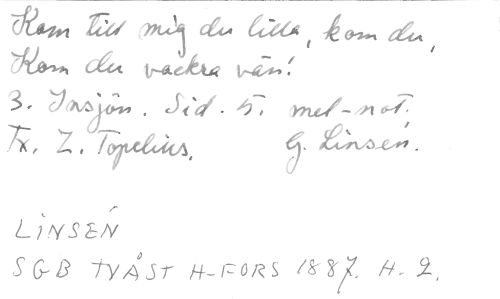 Kom till mig du lilla, kom du,
Kom du vackra vän!
3. Insjön. Sid. 5. mel-not.
Tx. Z. Topelius. G. Linsén.
LINSÉN
SGB TVÅST H-FORS 1887. H. 2.